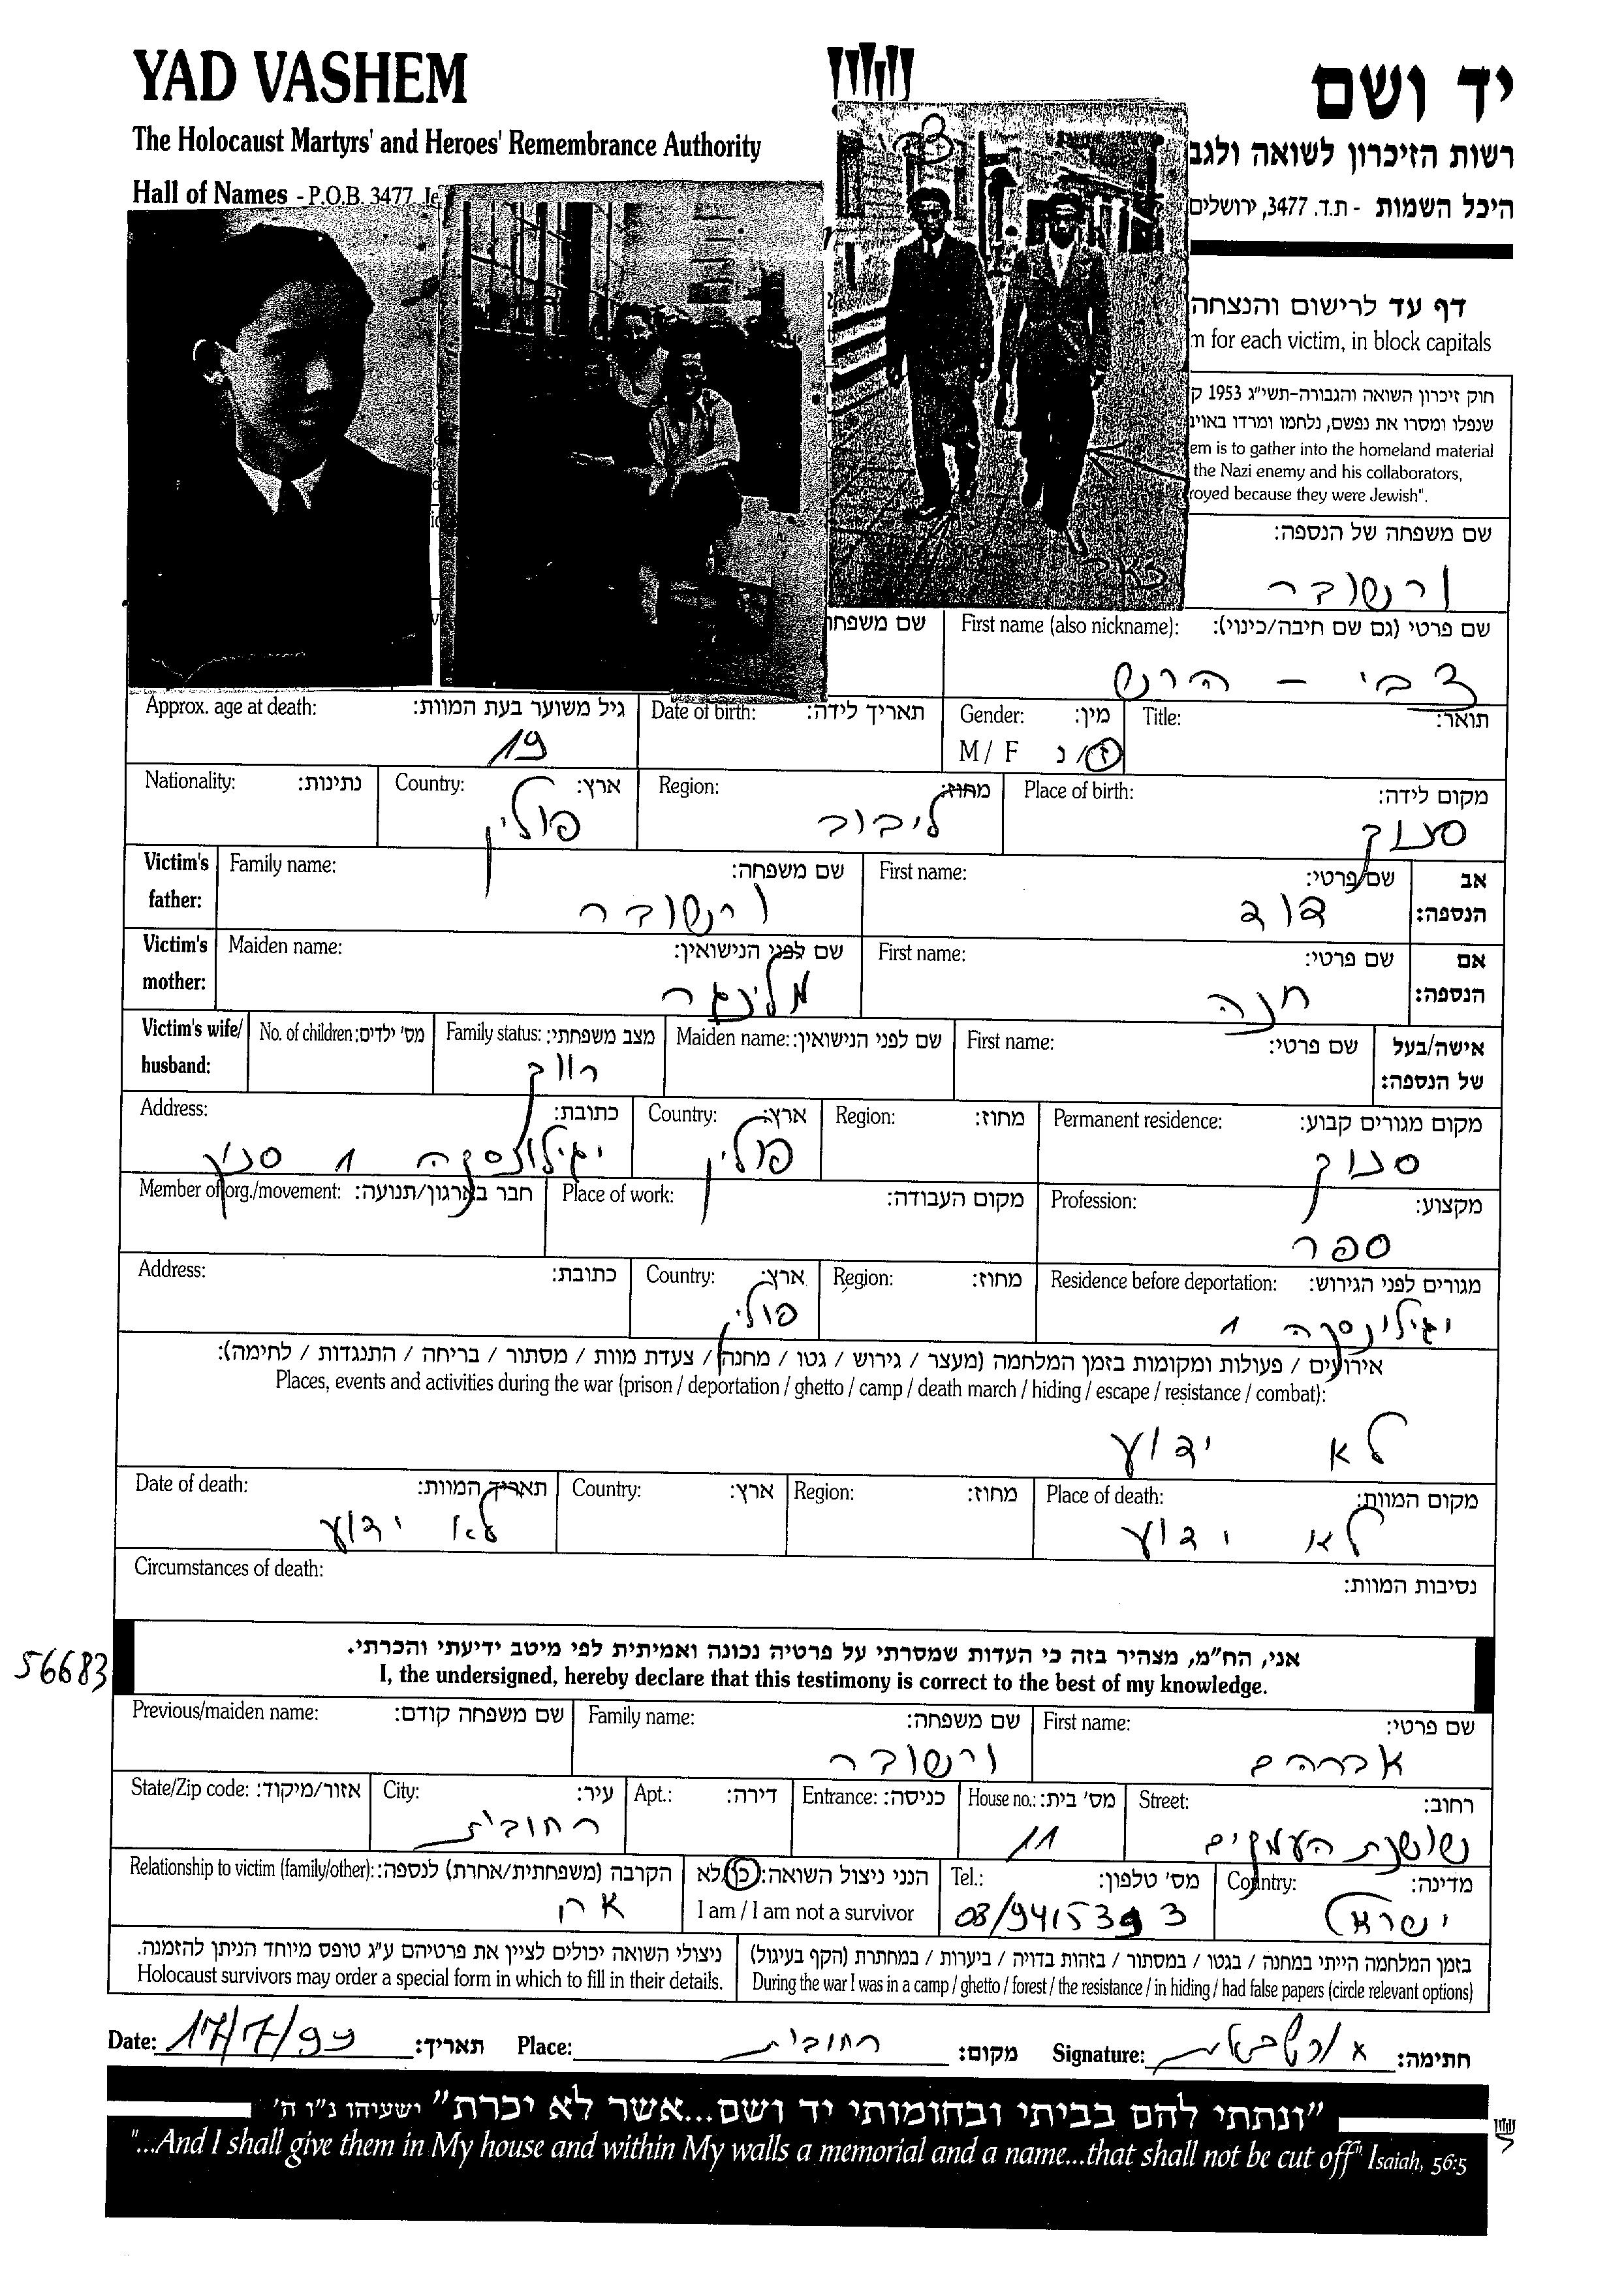 YAD VASHEM
יד ושם
The Holocaust Martyrs' and Heroes' Remembrance Authority
רשות הזיכרון לשואה ולגב
Hall of Names - P.O.B. 3477, Je
היכל השמות - ת.ד. 3477, ירושלים
דף עד לרישום והנצחה
m for each victim, in block capitals
חוק זיכרון השואה והגבורה-תשי״ג 1953 ק
שנפלו ומסרו את נפשם, נלחמו ומרדו באויב
em is to gather into the homeland material
the Nazi enemy and his collaborators,
royed because they were Jewish".
שם משפחה של הנספה:
ורשובר
שם משפחה First name (also nickname): שם פרטי (גם שם חיבה/כינוי):
צבי - הרש
Approx. age at death: גיל משוער בעת המוות: Date of birth: תאריך לידה: Gender: מין: Title: תואר:
19 M / F ז/נ
Nationality: נתינות: Country: ארץ: Region: מחוז: Place of birth: מקום לידה:
פולין ליבוב סנוק
Victim's father: Family name: שם משפחה: First name: שם פרטי: אב הנספה:
ורשובר דוד
Victim's mother: Maiden name: שם לפני הנישואין: First name: שם פרטי: אם הנספה:
מלינגר חנה
Victim's wife/ husband: No. of children: מס' ילדים: Family status: מצב משפחתי: Maiden name: שם לפני הנישואין: First name: שם פרטי: אישה/בעל של הנספה:
רווק
Address: כתובת: Country: ארץ: Region: מחוז: Permanent residence: מקום מגורים קבוע:
יגילונסקה 1 סנוק פולין סנוק
Member of org./movement: חבר בארגון/תנועה: Place of work: מקום העבודה: Profession: מקצוע:
ספר
Address: כתובת: Country: ארץ: Region: מחוז: Residence before deportation: מגורים לפני הגירוש:
פולין יגילונסקה 1
אירועים / פעולות ומקומות בזמן המלחמה (מעצר / גירוש / גטו / מחנה / צעדת מוות / מסתור / בריחה / התנגדות / לחימה):
Places, events and activities during the war (prison / deportation / ghetto / camp / death march / hiding / escape / resistance / combat):
לא ידוע
Date of death: תאריך המוות: Country: ארץ: Region: מחוז: Place of death: מקום המוות:
לא ידוע לא ידוע
Circumstances of death: נסיבות המוות:
אני, הח״מ, מצהיר בזה כי העדות שמסרתי על פרטיה נכונה ואמיתית לפי מיטב ידיעתי והכרתי.
56683
I, the undersigned, hereby declare that this testimony is correct to the best of my knowledge.
Previous/maiden name: שם משפחה קודם: Family name: שם משפחה: First name: שם פרטי:
ורשובר אברהם
State/Zip code: אזור/מיקוד: City: עיר: Apt.: דירה: Entrance: כניסה: House no.: מס' בית: Street: רחוב:
רחובות 11 שושנת העמקים
Relationship to victim (family/other): הקרבה (משפחתית/אחרת) לנספה: הנני ניצול השואה: כן/לא Tel.: מס' טלפון: Country: מדינה:
אח I am / I am not a survivor 08/9415393 ישראל
ניצולי השואה יכולים לציין את פרטיהם ע״ג טופס מיוחד הניתן להזמנה.
Holocaust survivors may order a special form in which to fill in their details.
בזמן המלחמה הייתי במחנה / בגטו / במסתור / בזהות בדויה / ביערות / במחתרת (הקף בעיגול)
During the war I was in a camp / ghetto / forest / the resistance / in hiding / had false papers (circle relevant options)
Date: 17/7/99 תאריך: Place: רחובות מקום: Signature: חתימה:
"ונתתי להם בביתי ובחומותי יד ושם...אשר לא יכרת" ישעיהו נ״ו ה'
"...And I shall give them in My house and within My walls a memorial and a name...that shall not be cut off" Isaiah, 56:5